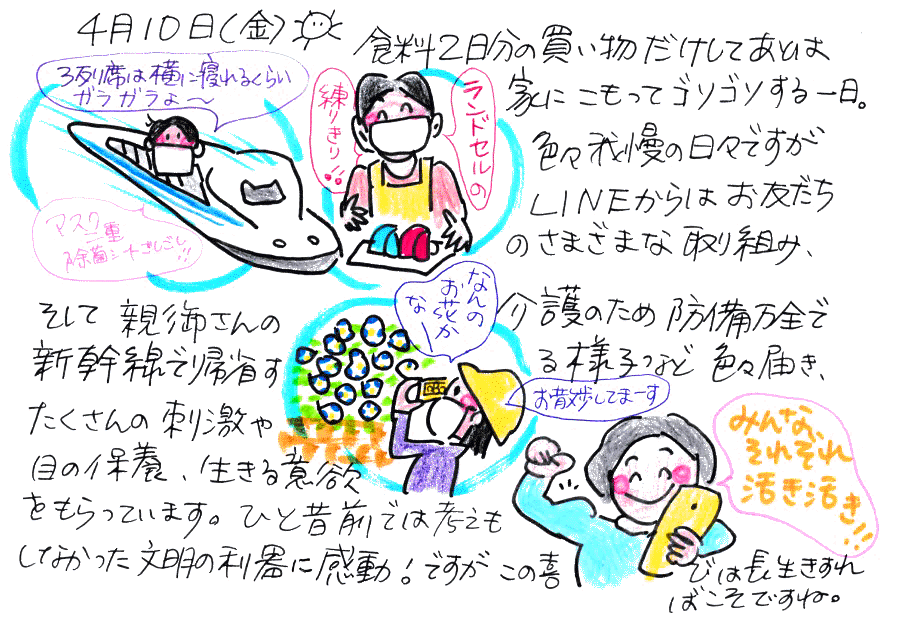 4月10日(金)
食料2日分の買い物だけしてあとは
家にこもってゴソゴソする一日。
色々我慢の日々ですが
LINEからはお友だち
のさまざまな取り組み、
3列席は横に寝れるくらい
ガラガラよ〜
マスク二重
除菌シートごしごし!!
ランドセルの
練りきり!!
そして親御さんの
介護のため防備万全で
新幹線で帰省す
る様子など色々届き、
なんの
お花か
なー
お散歩してまーす
たくさんの刺激や
目の保養、生きる意欲
をもらっています。ひと昔前では考えも
しなかった文明の利器に感動!ですがこの喜
びは長生きすれ
ばこそですね。
みんな、
それぞれ
活き活き!!